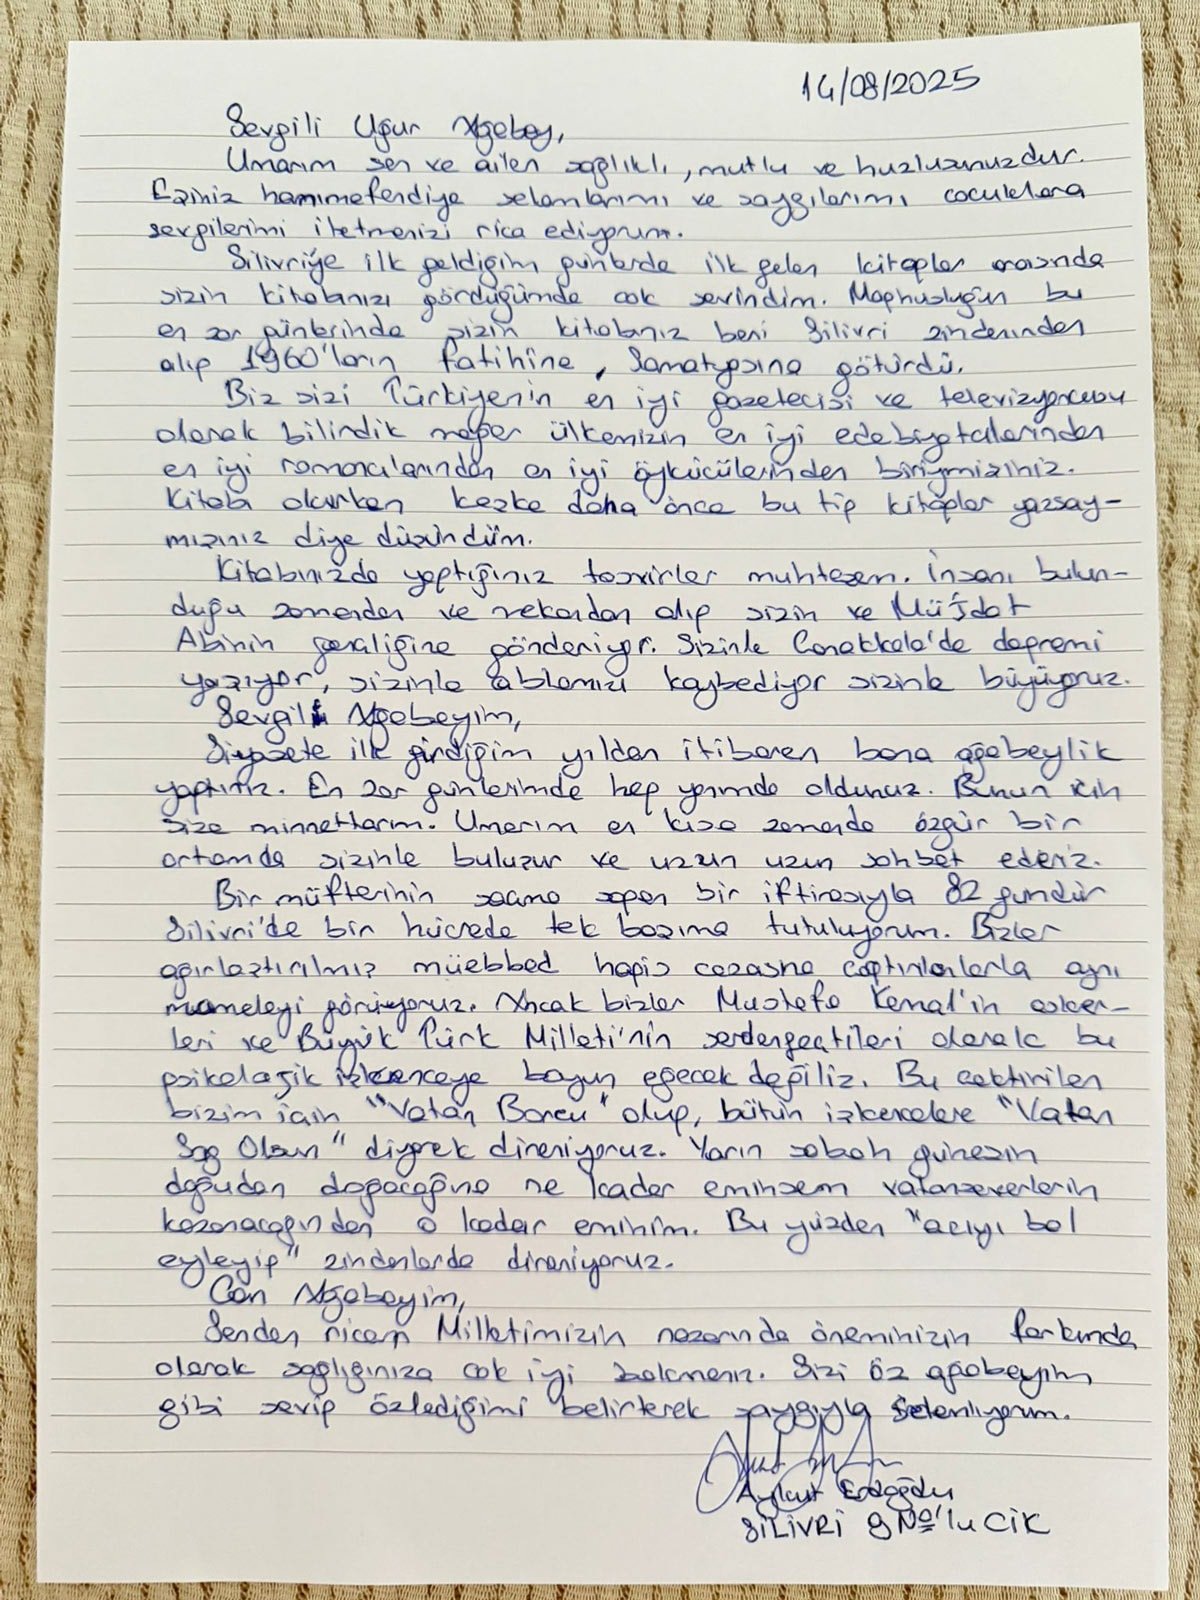 14/08/2025
Sevgili Uğur Ağabey,
Umarım sen ve ailen sağlıklı, mutlu ve huzlusunuzdur.
Eşiniz hanımefendiye selamlarımı ve saygılarımı çocuklara
sevgilerimi iletmenizi rica ediyorum.
Silivri'ye ilk geldiğim günlerde ilk gelen kitaplar arasında
sizin kitabınızı gördüğümde çok sevindim. Mapusluğun bu
en zor günlerinde sizin kitabınız beni Silivri zindanından
alıp 1960'ların Fatihine, Samatyasına götürdü.
Biz sizi Türkiyenin en iyi gazetecisi ve televizyoncusu
olarak bilirdik meğer ülkemizin en iyi edebiyatcılarından
en iyi romancılarından en iyi öykücülerinden biriymişiniz.
Kitabı okurken keşke daha önce bu tip kitaplar yazsay-
mışınız diye düşündüm.
Kitabınızda yaptığınız tasvirler muhteşem. İnsanı bulun-
duğu zamandan ve mekandan alıp sizin ve Müjdat
Abinin gençliğine gönderiyor. Sizinle Çanakkale'de depremi
yaşıyor, sizinle ablamızı kaybediyor sizinle büyüyoruz.
Sevgili Ağabeyim,
Siyasete ilk girdiğim yıldan itibaren bana ağabeylik
yaptınız. En zor günlerimde hep yanımda oldunuz. Bunun için
size minnettarım. Umarım en kısa zamanda özgür bir
ortamda sizinle buluşur ve uzun uzun sohbet ederiz.
Bir müfterinin saçma sapan bir iftirasıyla 82 gündür
Silivri'de bir hücrede tek başıma tutuluyorum. Bizler
ağırlaştırılmış müebbed hapis cezasına çaptırılanlarla aynı
muameleyi görüyoruz. Ancak bizler Mustafa Kemal'in asker-
leri ve Büyük Türk Milleti'nin serdengeçtileri olarak bu
psikolojik işkenceye boyun eğecek değiliz. Bu çektirilen
bizim için "Vatan Borcu" olup, bütün işkencelere "Vatan
Sağ Olsun" diyerek direniyoruz. Yarın sabah güneşin
doğudan doğacağına ne kadar eminsem vatanseverlerin
kazanacağından o kadar eminim. Bu yüzden "acıyı bal
eyleyip" zindanlarda direniyoruz.
Can Ağabeyim,
Senden ricam Milletimizin nazarında öneminizin farkında
olarak sağlığınıza çok iyi bakmanız. Sizi öz ağabeyim
gibi sevip özlediğimi belirterek saygıyla selamlıyorum.
Aykut Erdoğdu
SİLİVRİ 9 No'lu CİK